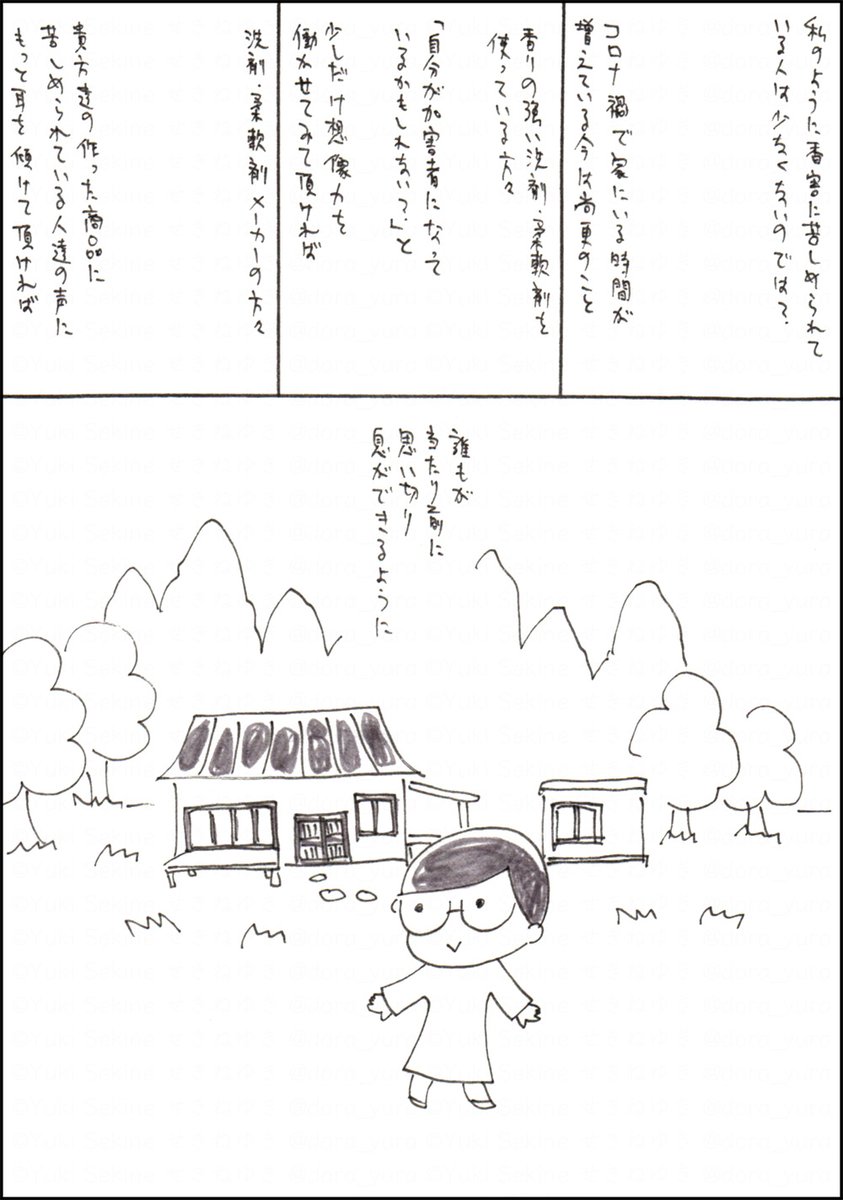 私のように香害に苦しめられて
いる人は少なくないのでは？
コロナ禍で家にいる時間が
増えている今は尚更のこと
香りの強い洗剤・柔軟剤を
使っている方々
「自分が加害者になって
いるかもしれない？」と
少しだけ想像力を
働かせてみて頂ければ
洗剤・柔軟剤メーカーの方々
貴方達の作った商品に
苦しめられている人達の声に
もっと耳を傾けて頂ければ
誰もが
当たり前に
思い切り
息ができるように
©Yuki Sekine せきねゆき @dora_yura